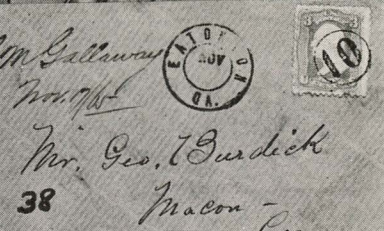 Gallaway
Nov. 7/65
EATONTON
NOV
GA.
3 3
10
Mr. Geo. T Burdick
38
Macon -